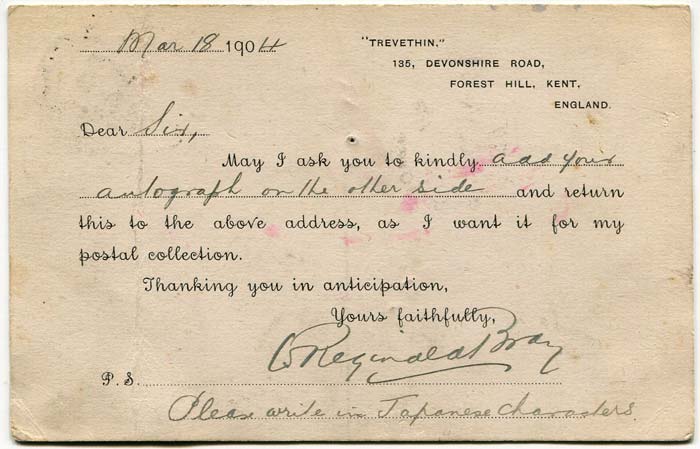 Mar 18 1904
"TREVETHIN,"
135, DEVONSHIRE ROAD,
FOREST HILL, KENT,
ENGLAND.
Dear Sir,
May I ask you to kindly add your
autograph on the other side and return
this to the above address, as I want it for my
postal collection.
Thanking you in anticipation,
Yours faithfully,
W Reginald Bray
P.S.
Please write in Japanese characters.